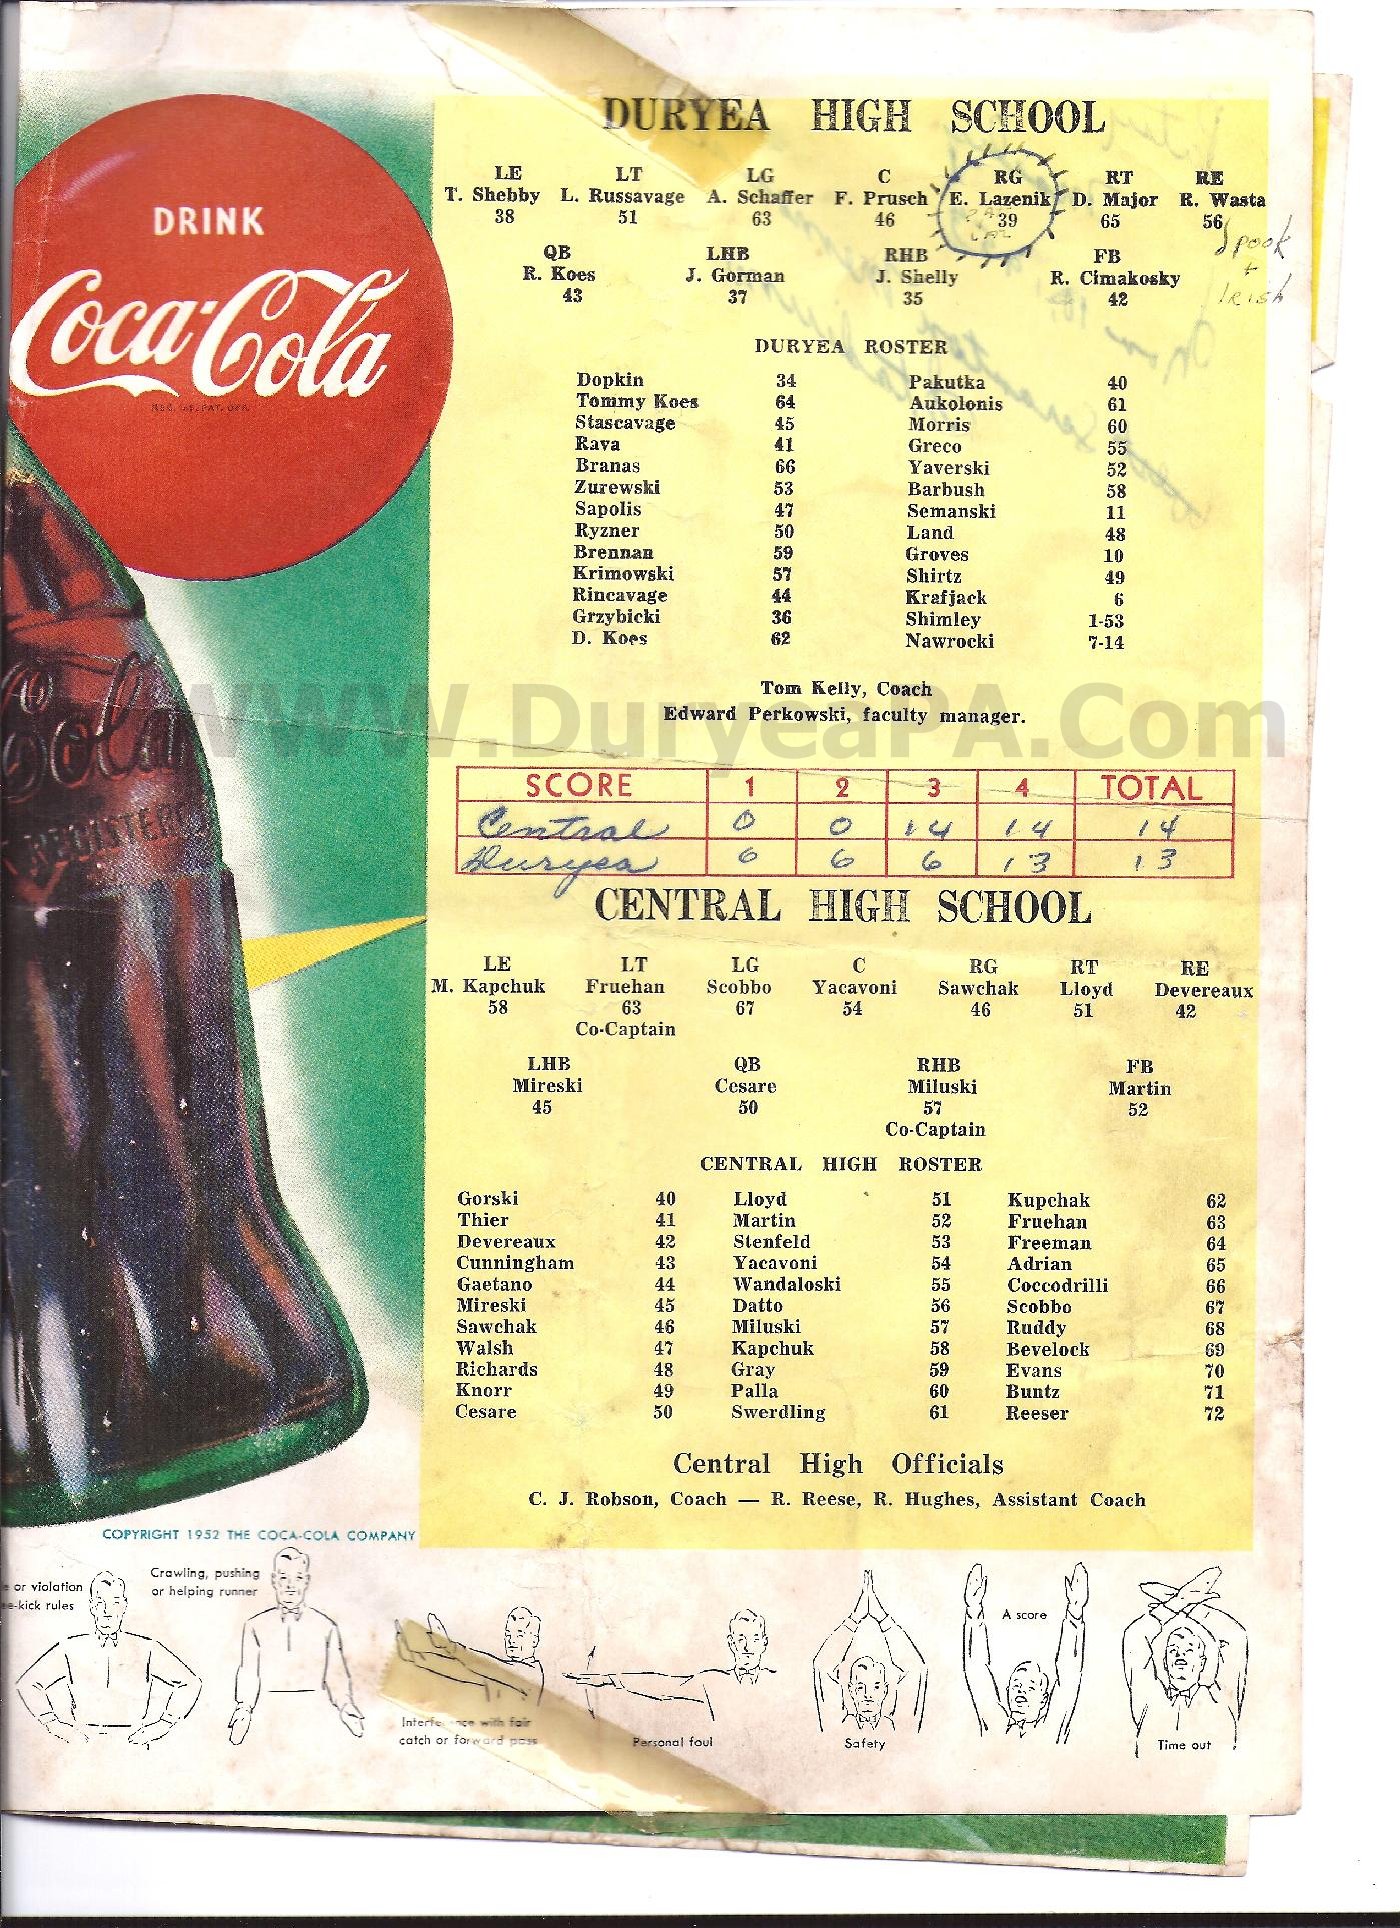 DRINK
Coca-Cola
REG. U.S. PAT. OFF.
Cola
REGISTERED
DURYEA HIGH SCHOOL
LE LT LG C RG RT RE
T. Shebby L. Russavage A. Schaffer F. Prusch E. Lazenik D. Major R. Wasta
38 51 63 46 39 65 56
Spook
+
Irish
QB LHB RHB FB
R. Koes J. Gorman J. Shelly R. Cimakosky
43 37 35 42
DURYEA ROSTER
Dopkin 34 Pakutka 40
Tommy Koes 64 Aukolonis 61
Stascavage 45 Morris 60
Rava 41 Greco 55
Branas 66 Yaverski 52
Zurewski 53 Barbush 58
Sapolis 47 Semanski 11
Ryzner 50 Land 48
Brennan 59 Groves 10
Krimowski 57 Shirtz 49
Rincavage 44 Krafjack 6
Grzybicki 36 Shimley 1-53
D. Koes 62 Nawrocki 7-14
Tom Kelly, Coach
Edward Perkowski, faculty manager.
WWW.DuryeaPA.Com
SCORE 1 2 3 4 TOTAL
Central 0 0 14 14 14
Duryea 6 6 6 13 13
CENTRAL HIGH SCHOOL
LE LT LG C RG RT RE
M. Kapchuk Fruehan Scobbo Yacavoni Sawchak Lloyd Devereaux
58 63 67 54 46 51 42
Co-Captain
LHB QB RHB FB
Mireski Cesare Miluski Martin
45 50 57 52
Co-Captain
CENTRAL HIGH ROSTER
Gorski 40 Lloyd 51 Kupchak 62
Thier 41 Martin 52 Fruehan 63
Devereaux 42 Stenfeld 53 Freeman 64
Cunningham 43 Yacavoni 54 Adrian 65
Gaetano 44 Wandaloski 55 Coccodrilli 66
Mireski 45 Datto 56 Scobbo 67
Sawchak 46 Miluski 57 Ruddy 68
Walsh 47 Kapchuk 58 Bevelock 69
Richards 48 Gray 59 Evans 70
Knorr 49 Palla 60 Buntz 71
Cesare 50 Swerdling 61 Reeser 72
Central High Officials
C. J. Robson, Coach — R. Reese, R. Hughes, Assistant Coach
COPYRIGHT 1952 THE COCA-COLA COMPANY
or violation
e-kick rules
Crawling, pushing
or helping runner
Interference with fair
catch or forward pass
Personal foul
Safety
A score
Time out